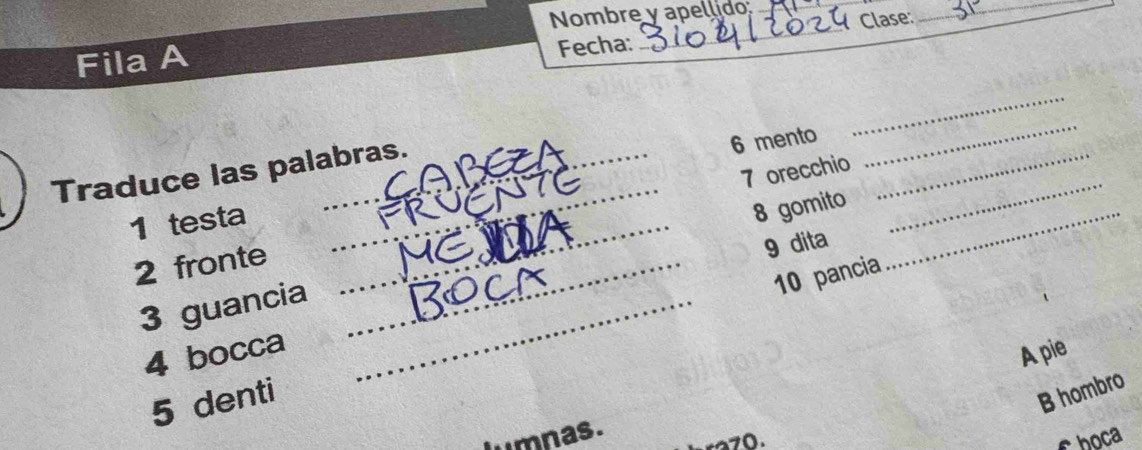 Nombre y apellido:
Fila A
Fecha: 3/04/2024 Clase:
Traduce las palabras.
1 testa CABEZA
2 fronte FRUENTE
3 guancia
4 bocca BOCA
5 denti
6 mento
7 orecchio
8 gomito
9 dita
10 pancia
A pie
B hombro
boca